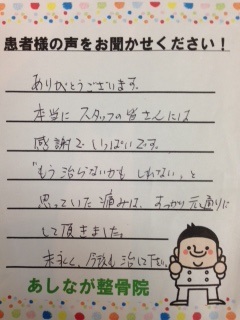 患者様の声をお聞かせください！
ありがとうございます。
本当に スタッフの皆さんには
感謝で いっぱいです。
"もう 治らないかも しれない〟と
思っていた 痛みは、すっかり 元通りに
して頂きました。
末永く、 治して下さい。
あしなが整骨院